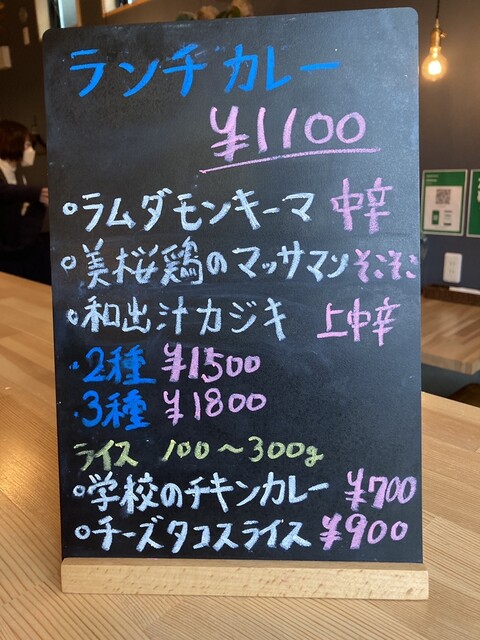 ランチカレー
¥1100
○ラムダモンキーマ 中辛
○美桜鶏のマッサマン そこそこ
○和出汁カジキ 上中辛
・2種 ¥1500
・3種 ¥1800
ライス 100〜300g
○学校のチキンカレー ¥700
○チーズタコスライス ¥900